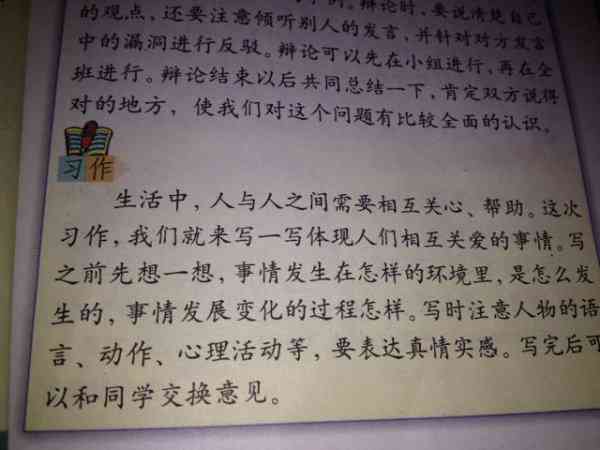 辩论时，要说清楚自己
的观点，还要注意倾听别人的发言，并针对对方发言
中的漏洞进行反驳。辩论可以先在小组进行，再在全
班进行。辩论结束以后共同总结一下，肯定双方说得
对的地方，使我们对这个问题有比较全面的认识。
习作
生活中，人与人之间需要相互关心、帮助。这次
习作，我们就来写一写体现人们相互关爱的事情。写
之前先想一想，事情发生在怎样的环境里，是怎么发
生的，事情发展变化的过程怎样。写时注意人物的语
言、动作、心理活动等，要表达真情实感。写完后可
以和同学交换意见。